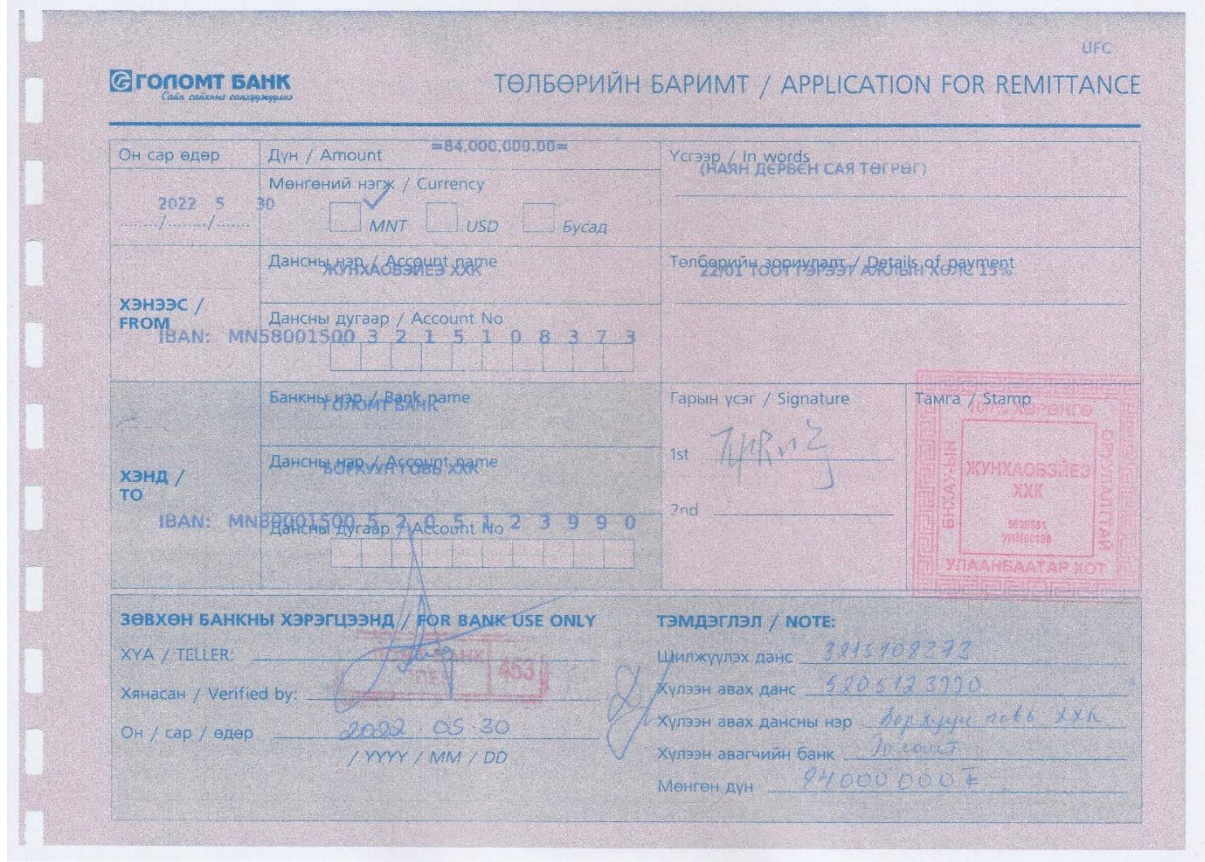 UFC
ГОЛОМТ БАНК
ТӨЛБӨРИЙН БАРИМТ / APPLICATION FOR REMITTANCE
Он сар өдөр
2022 5 30
Дүн / Amount =84,000,000.00=
Мөнгөний нэгж / Currency
MNT USD Бусад
Үсгээр / In words
(НАЯН ДӨРВӨН САЯ ТӨГРӨГ)
ХЭНЭЭС /
FROM
Дансны нэр / Account name
ЖУНХАОВЭЙЕЭ ХХК
Дансны дугаар / Account No
IBAN: MN58001500 3 2 1 5 1 0 8 3 7 3
Төлбөрийн зориулалт / Details of payment
22/01 ТООТ ГЭРЭЭТ АЖЛЫН ХӨЛС 15%
ХЭНД /
TO
Банкны нэр / Bank name
ГОЛОМТ БАНК
Дансны нэр / Account name
БОРХУУН ГОВЬ ХХК
IBAN: MN80001500 5 2 0 5 1 2 3 9 9 0
Дансны дугаар / Account No
Гарын үсэг / Signature
1st
2nd
Тамга / Stamp
100% ХӨРӨНГӨ
БНХАУ-ЫН
ОРУУЛАЛТТАЙ
ЖУНХАОВЭЙЕЭ
ХХК
УЛААНБААТАР ХОТ
ЗӨВХӨН БАНКНЫ ХЭРЭГЦЭЭНД / FOR BANK USE ONLY
ХҮА / TELLER:
453
Хянасан / Verified by:
Он / сар / өдөр 2022.05.30
/ YYYY / MM / DD
ТЭМДЭГЛЭЛ / NOTE:
Шилжүүлэх данс 3215108373
Хүлээн авах данс 5205123990
Хүлээн авах дансны нэр Борхуун говь ХХК
Хүлээн авагчийн банк Голомт
Мөнгөн дүн 84000000₮